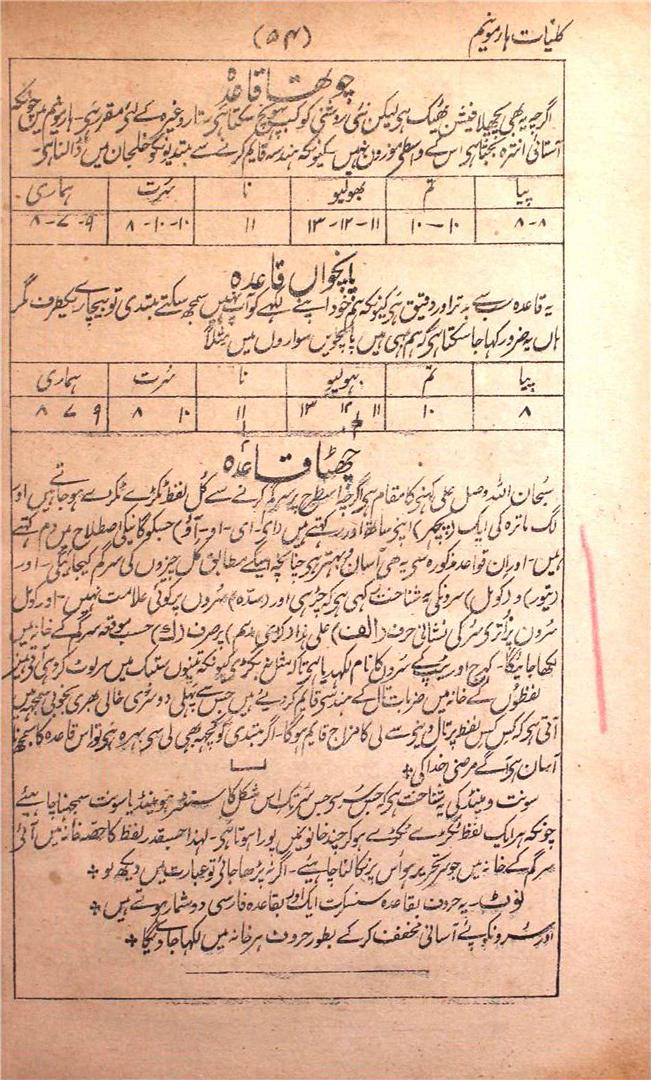 کلیات ہارمونیم
(۵۴)
چوتھا قاعدہ
اگرچہ یہ بھی پچھلا فیشن ٹھیک ہی لیکن نئی روشنی کو کب پہنچ سکتا ہی ستار وغیرہ کے لئے مقرر ہی۔ ہارمونیم میں چونکہ
آستائی انترہ بجتا ہی اس کے واسطے موزون نہیں کیونکہ ہندسہ قایم کرنے سے مبتدیونکو خلجان میں ڈالنا ہی۔
پیا | تم | بھولیو | نا | سُرت | ہماری
۸-۸ | ۱۰-۱۰ | ۱۱-۱۲-۱۳ | ۱۱ | ۱۰-۱۰-۸ | ۹-۷-۸
پانچواں قاعدہ
یہ قاعدہ سب سے بدتر اور دقیق ہی کیونکہ ہم خود اپنے لکہے کو آپ نہیں سمجھ سکتے مبتدی تو بیچارے یکطرف مگر
ہاں یہ ضرور کہا جا سکتا ہی کہ ہم بھی ہیں پانچویں سواروں میں مثلاً
پیا | تم | بہولیو | نا | سُرت | ہماری
۸ | ۱۰ | ۱۱ ۱۲ ۱۳ | ۱۱ | ۱۰ ۸ | ۹ ۷ ۸
چھٹا قاعدہ
سُبحان اللہ وصل علی کہنے کا مقام ہی اگرچہ اس طرح پر سرگم کرنے سے کُل لفظ ٹکڑے ٹکڑے ہو جاتے ہیں اور
لگ ماترہ کی ایک (پیچر) اپنے ساتھ اور رکھتے ہیں (ا-ی-ای-او-آؤ) جسکو گائیکی اصطلاح میں دم کہتے
ہیں۔ اور ان قواعد مذکورہ سی یہ بھی آسان و بہتر ہی چنانچہ اسیکے مطابق کل چیزوں کی سرگم کیجائیگی۔ اور
(تیور) و (کومل) سرونکی یہ شناخت رکھی ہی کہ چڑھی اور (سدہ) سُروں پر کوئی علامت نہیں۔ اور کومل
سُروں پر اُتری سُر کی نشانی حرف (الف) علی ہذا کڑی (مدہم) پر صرف (ک) حسب موقعہ سرگم کے خانہ میں
لکھا جائیگا۔ کھرج اور ٹیپ کے سُروں کا نام لکھدیا ہی تاکہ شغل نہ بگڑی کیونکہ تینوں سپتک میں ہر لوٹ کر وہی آتی ہیں
لفظوں کے خانہ میں ضربات تال کے ہندسی قایم کر دیے ہیں جس سے پہلی دوسری خالی بھری بخوبی سمجھ میں
آتی ہی کہ کس کس لفظ پر تال دینے سے لی کا مزاج قایم ہوگا۔ اگر مبتدی کو کچھ بھی لی سی بہرہ ہی تو اس قاعدہ کا سمجھنا
آسان ہی آگے مرضی خدا کی
سونت و مینڈ کی یہ شناخت ہی کہ جس سُر سی جس سُر تک اس شکل کا ہو مینڈ یا سونت سمجھنا چاہیئے
چونکہ ہر ایک لفظ ٹکڑے ٹکڑے ہو کر چند خانوں میں پورا ہوتا ہی۔ لہذا جسقدر لفظ کا حصّہ خانہ میں آئی
سرگم کے خانہ میں جو سُر تحریر ہو اُس پر نکالنا چاہیئے۔ اگر نہ پڑھا جائی تو عبارت میں دیکھ لو
نوٹ۔ یہ حروف بقاعدہ سنسکرت ایک اور بقاعدہ فارسی دو شمار ہوتے ہیں
اور سرونکو برائے آسانی مخفف کرکے بطور حروف ہر خانہ میں لکہا جاویگا